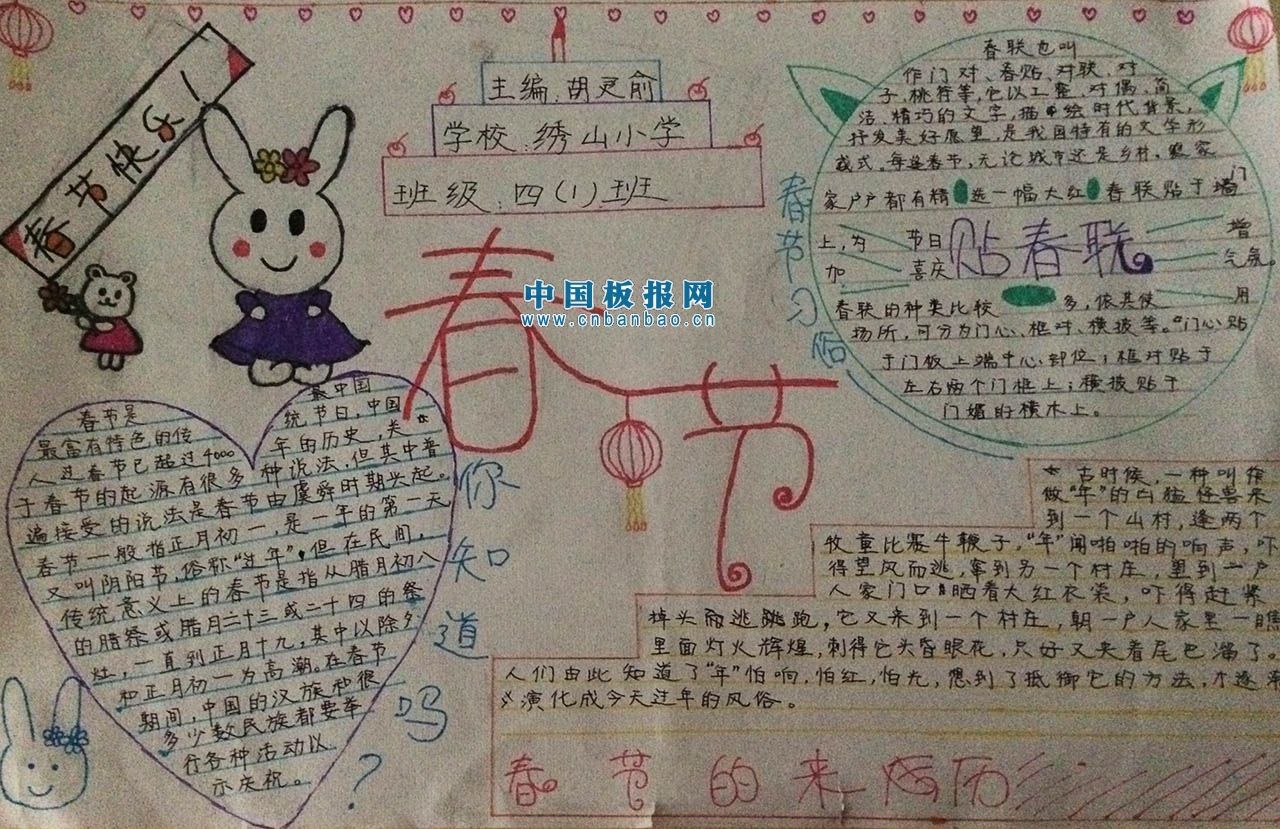 春节快乐！
主编：胡灵俞
学校：绣山小学
班级：四（1）班
春节
中国板报网
www.cnbanbao.cn
春节习俗
春联也叫
作门对、春贴、对联、对
子，桃符等，它以工整、对偶、简
洁、精巧的文字，描绘时代背景，
抒发美好愿望，是我国特有的文学形
式。每逢春节，无论城市还是乡村，
家户户都有精选一幅大红春联贴于墙门
上，为 节日 增
加 喜庆 气氛。
贴春联
春联的种类比较多，依其使用
场所，可分为门心、框对、横披等。“门心”贴
于门板上端中心部位；框对贴于
左右两个门框上；横披贴于
门媚的横木上。
春节是 最中国
最富有特色的传 统节日，中国
人过春节已超过4000 年的历史，关
于春节的起源有很多 种说法，但其中普
遍接受的说法是春节由虞舜时期兴起。
春节一般指正月初一，是一年的第一天
又叫阴阳节，俗称“过年”，但在民间，
传统意义上的春节是指从腊月初八
的腊祭或腊月二十三或二十四的祭
灶，一直到正月十九，其中以除夕
和正月初一为高潮。在春节
期间，中国的汉族和很
多少数民族都要举
行各种活动以
示庆祝。
你知道吗？
古时候，一种叫作
做“年”的凶猛怪兽来
到一个山村，逢两个
牧童比赛牛鞭子，“年”闻啪啪的响声，吓
得望风而逃，窜到另一个村庄，里到一户
人家门口晒着大红衣裳，吓得赶紧
掉头而逃跳跑，它又来到一个村庄，朝一户人家里一瞧
里面灯火辉煌，刺得它头昏眼花，只好又夹着尾巴溜了。
人们由此知道了“年”怕响，怕红，怕光，想到了抵御它的方法，才逐渐
演化成今天过年的风俗。
春节的来历